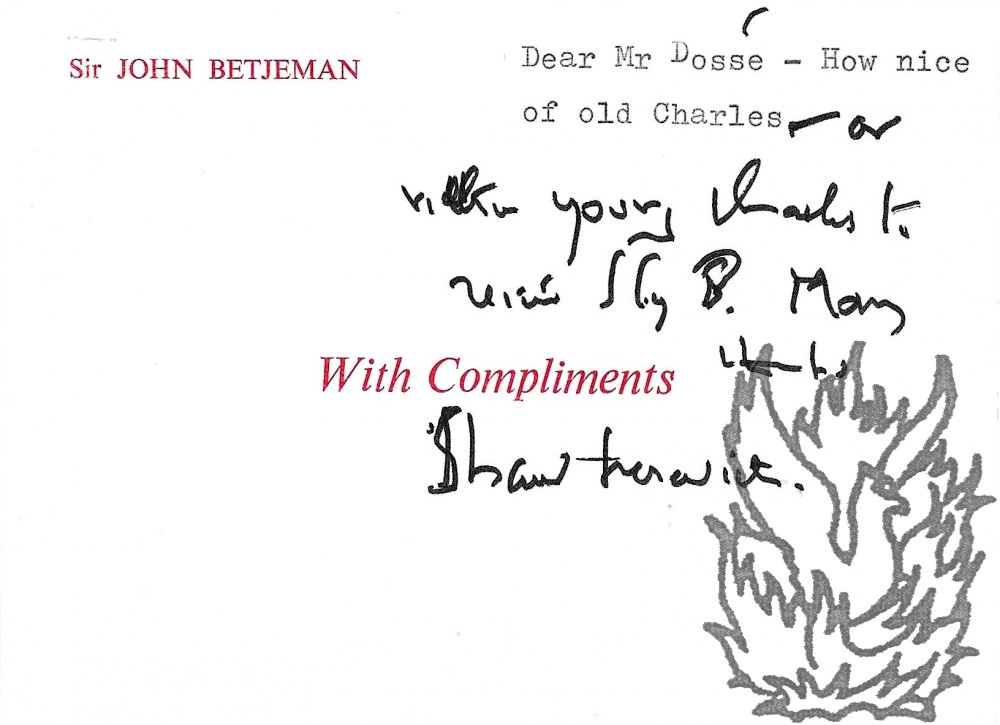 Sir JOHN BETJEMAN
Dear Mr Dossé - How nice
of old Charles — or
rather young Charles to
B. Many
thanks
With Compliments